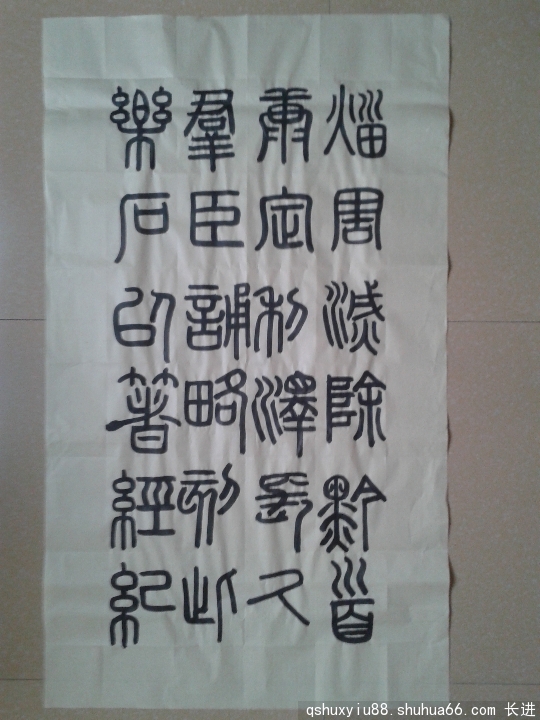 災害滅除黔首
康定利澤長久
羣臣誦略刻此
樂石以著經紀
qshuxyiu88.shuhua66.com 长进